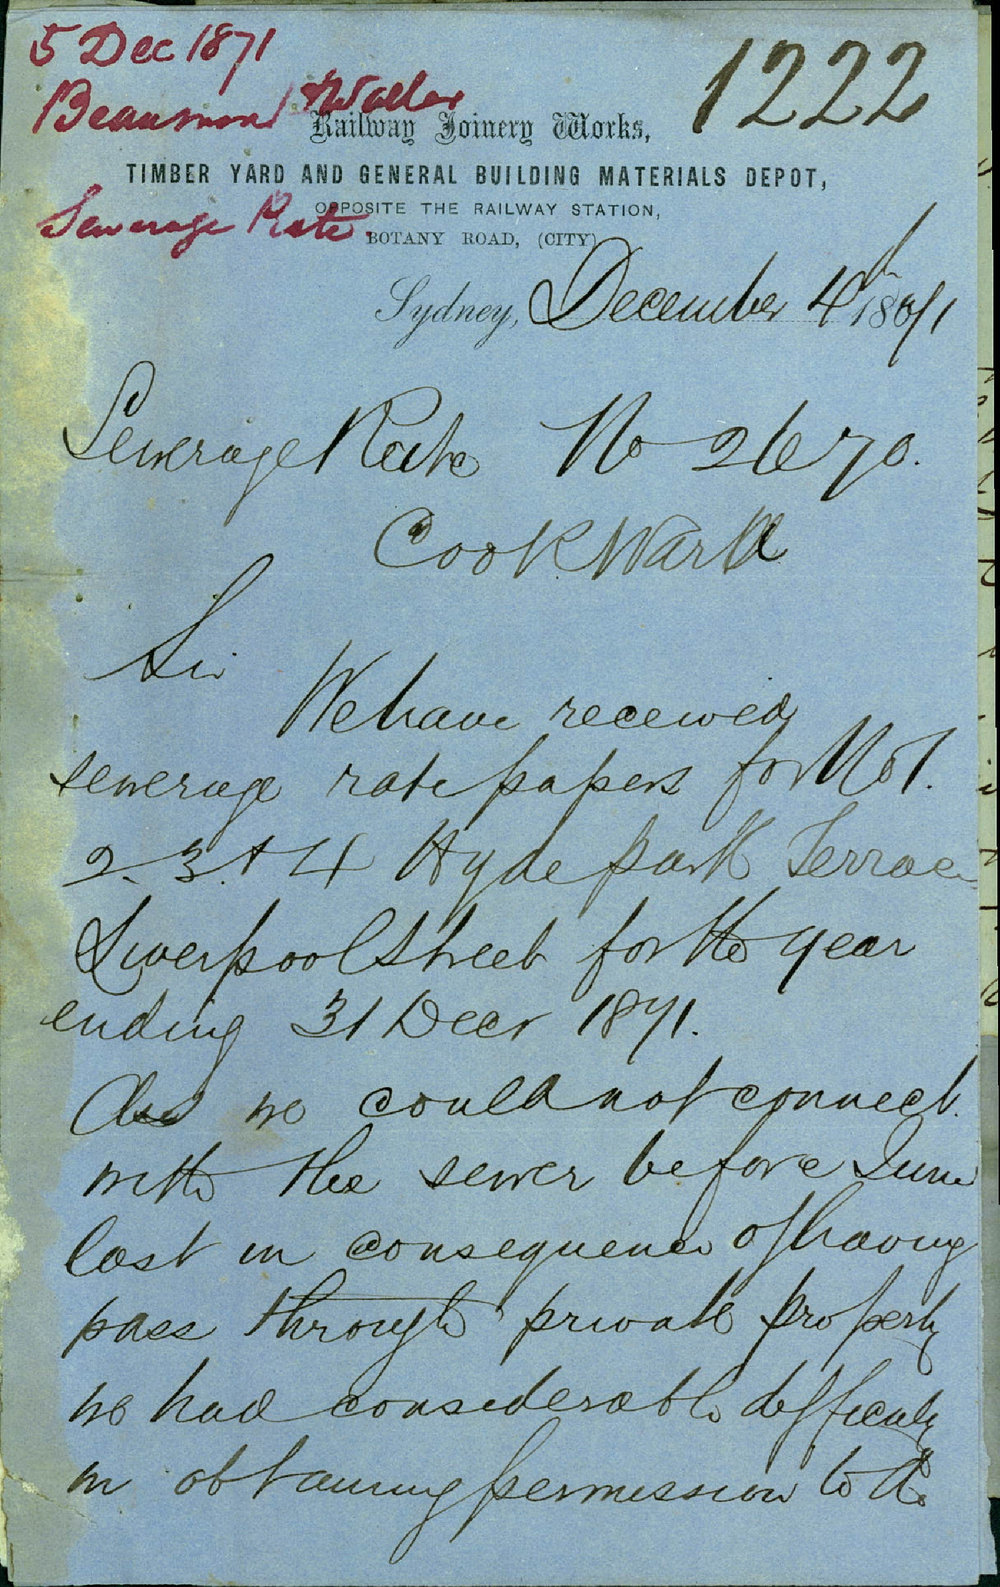 5 Dec 1871
Beaumont & Waller
1222
Railway Joinery Works,
TIMBER YARD AND GENERAL BUILDING MATERIALS DEPOT,
OPPOSITE THE RAILWAY STATION,
Sewerage Rate
BOTANY ROAD, (CITY)
Sydney, December 4th 1871
Sewerage Rate No 2670.
Cook Ward
Sir
We have received
sewerage rate papers for No 1.
2. 3. & 4 Hyde park Terrace
Liverpool Street for the year
ending 31 Decr 1871.
As we could not connect
with the sewer before June
last in consequence of having
pass through private property
we had considerable difficulty
in obtaining permission to do